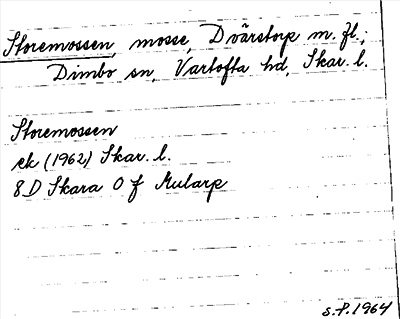 Storemossen, mosse, Dvärstorp m. fl.;
Dimbo sn, Vartofta hd, Skar. l.
Storemossen
ek (1962) Skar. l.
8D Skara O f Mularp
S.P. 1964